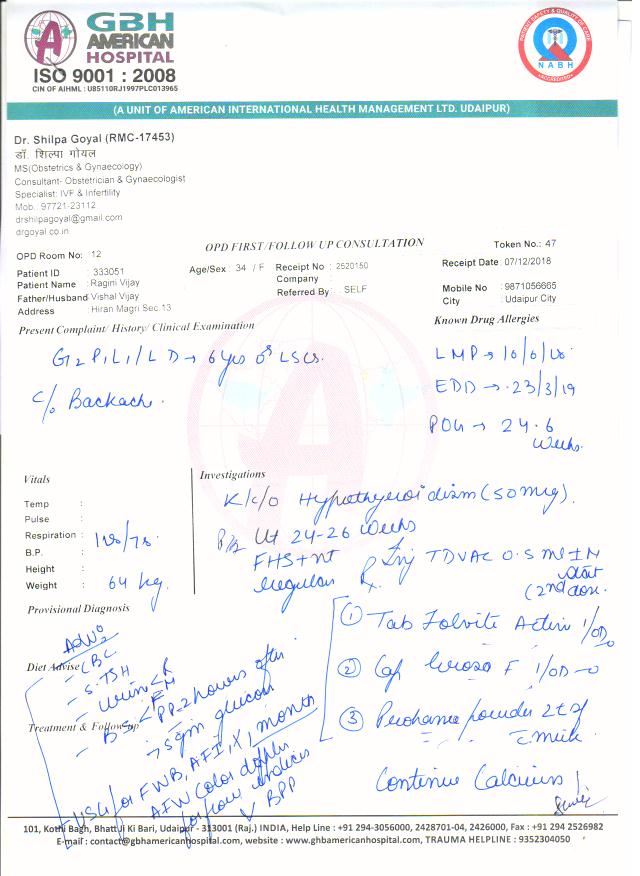 GBH
AMERICAN
HOSPITAL
ISO 9001 : 2008
CIN OF AIHML : U85110RJ1997PLC013965
PATIENT SAFETY & QUALITY OF CARE
NABH
ACCREDITED
(A UNIT OF AMERICAN INTERNATIONAL HEALTH MANAGEMENT LTD. UDAIPUR)
Dr. Shilpa Goyal (RMC-17453)
डॉ. शिल्पा गोयल
MS(Obstetrics & Gynaecology)
Consultant- Obstetrician & Gynaecologist
Specialist: IVF & Infertility
Mob.: 97721-23112
drshilpagoyal@gmail.com
drgoyal.co.in
OPD FIRST/FOLLOW UP CONSULTATION
Token No.: 47
OPD Room No: 12
Receipt Date: 07/12/2018
Patient ID : 333051
Age/Sex : 34 / F
Receipt No : 2520150
Company :
Patient Name : Ragini Vijay
Referred By : SELF
Mobile No : 9871056665
Father/Husband Vishal Vijay
City : Udaipur City
Address : Hiran Magri Sec.13
Present Complaint/ History/ Clinical Examination
Known Drug Allergies
G2P1L1 / LD → 6 yrs LSCS.
LMP →
C/o Backache.
EDD → 23/3/19
POG → 24.6 weeks
Vitals
Investigations
K/c/o Hypothyroidism (50 mcg).
Temp :
Pulse :
Respiration :
B.P. :
Height :
Weight : 64 kg
P/A Ut 24-26 weeks
FHS + nt
Regular
Rx Inj TDVAC 0.5 ml IM
stat
(2nd dose.
Provisional Diagnosis
① Tab Folvite Active 1/OD
Adv
Diet Advise
- CBC
- S. TSH
- Urine < R M
- BS < F PP-2 hours after
75 gm glucose
② Cap F 1/OD
Treatment & Follow up
③ powder 2 tsf
c milk
USG for FWB, AFI, X 1 month
AFW color doppler
for flow indices
BPP
Continue Calcium
101, Kothi Bagh, Bhatt Ji Ki Bari, Udaipur - 313001 (Raj.) INDIA, Help Line : +91 294-3056000, 2428701-04, 2426000, Fax : +91 294 2526982
E-mail : contact@gbhamericanhospital.com, website : www.gbhamericanhospital.com, TRAUMA HELPLINE : 9352304050